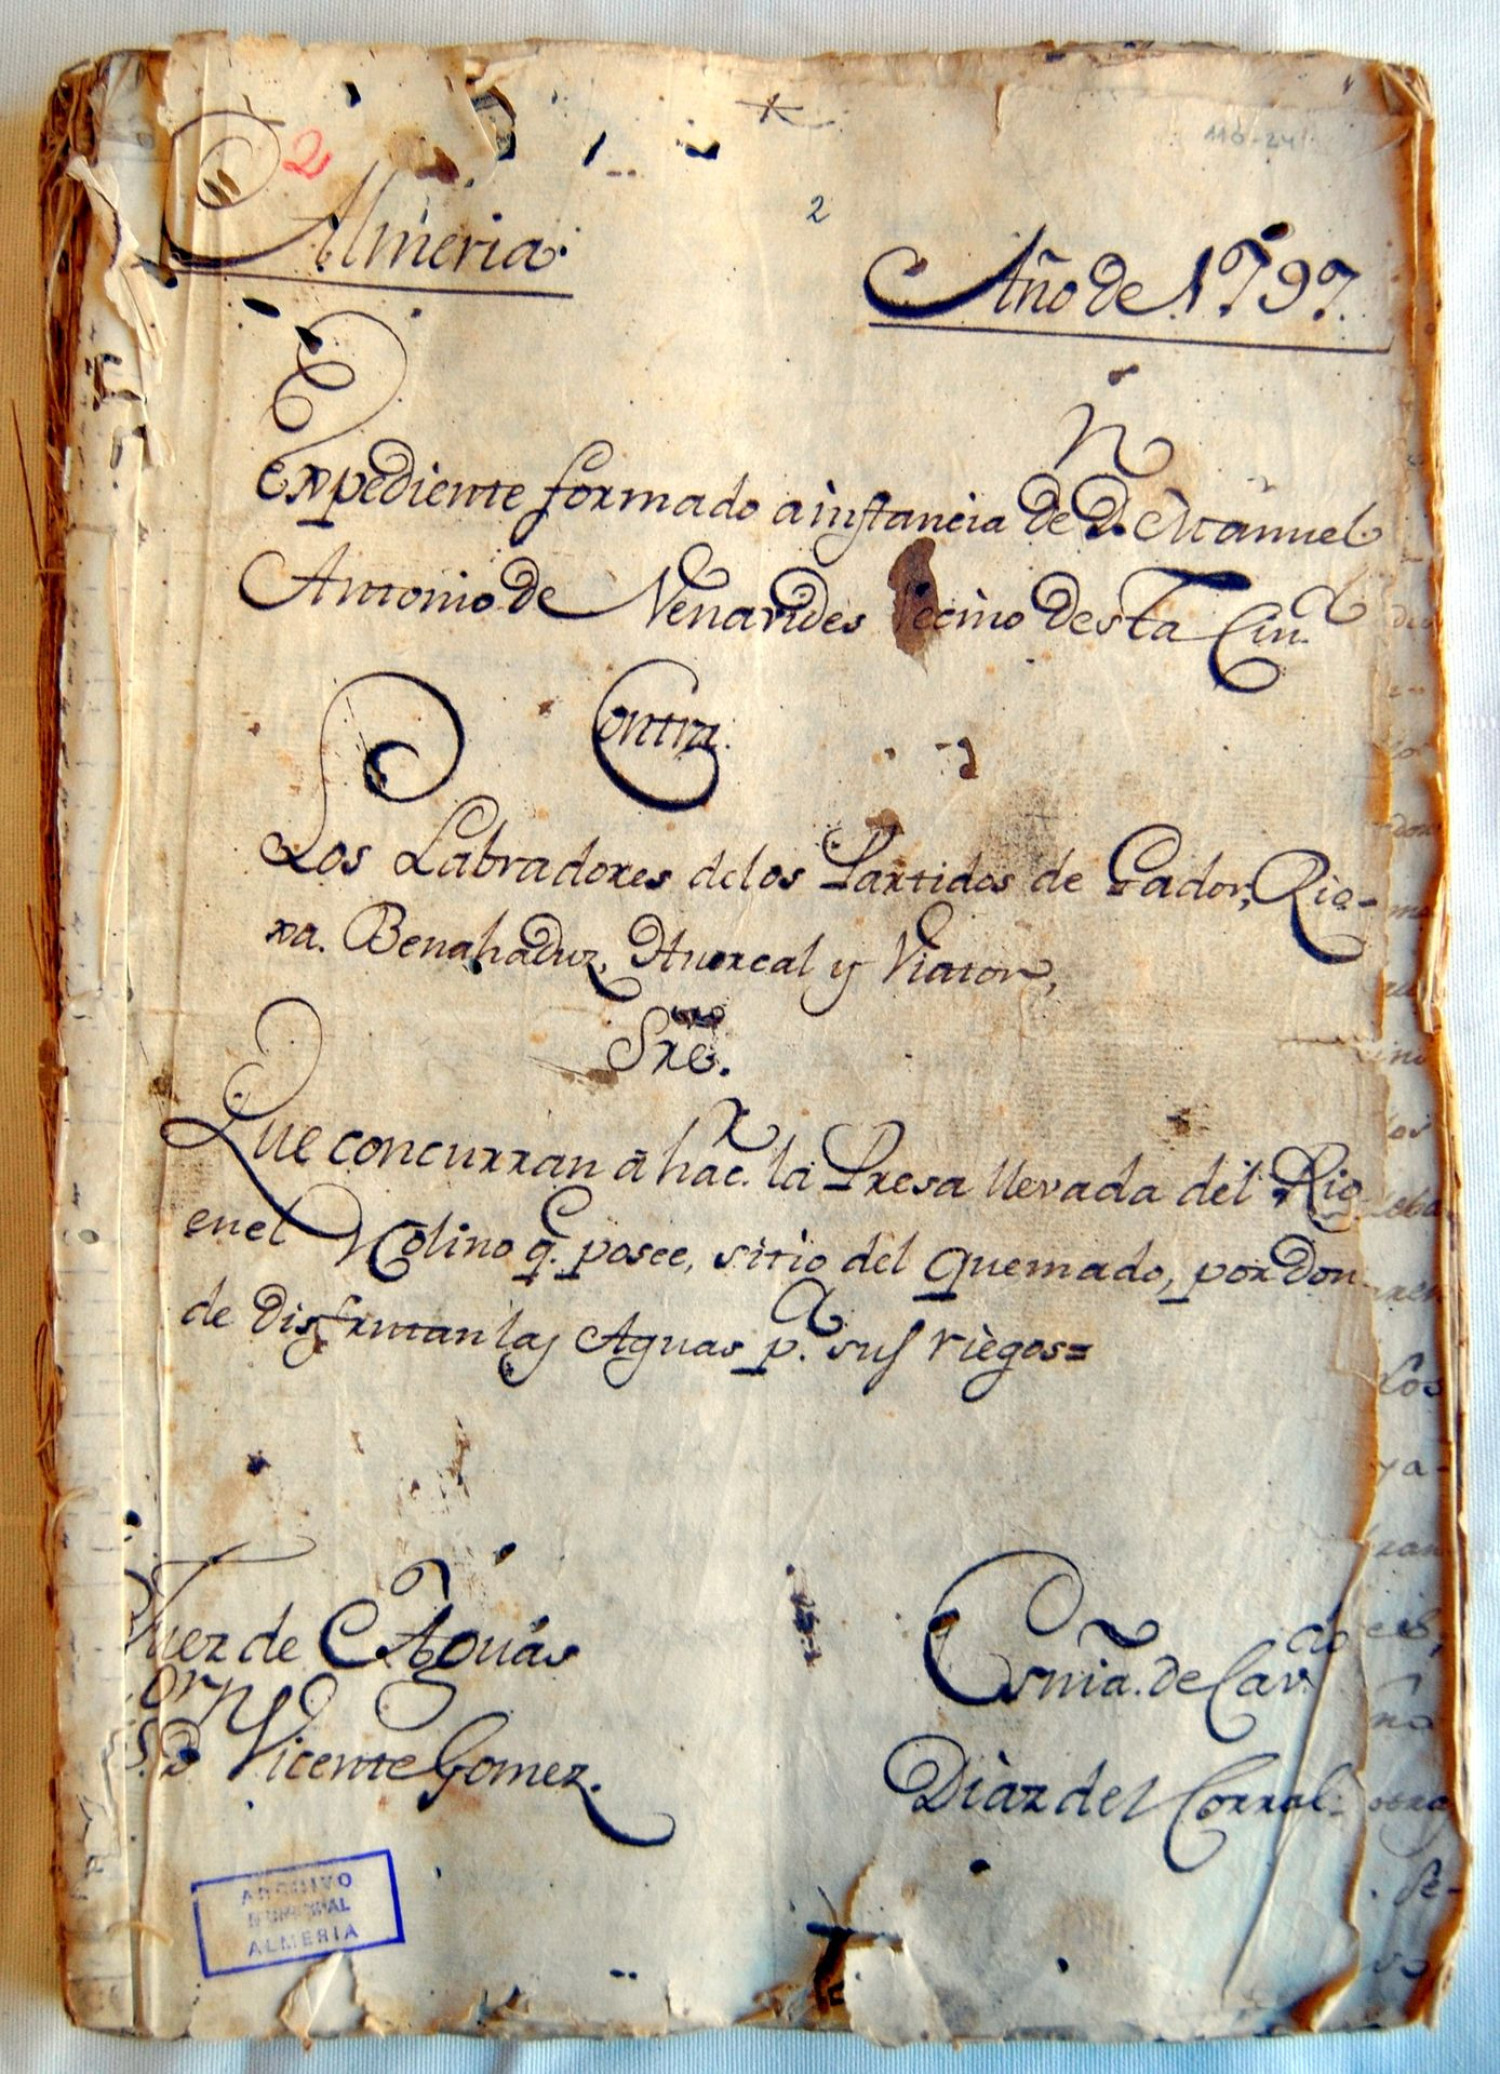 2
110-24
2
Almeria.
Año de 1797.
Expediente formado a instancia de Dn. Manuel
Antonio de Venavides Vecino desta Ciud.
Contra.
Los Labradores delos Partidos de Gador, Rio-
xa. Benahaduz, Huercal y Viator,
Sre.
Que concurran á hacer. la Presa llevada del Rio
enel Molino q.e posee, sitio del quemado, por Don
de disfrutan las Aguas p.a sus riegos=
Juez de Aguas
or
S. D Vicente Gomez.
Esnia. de Cavdo
Diaz del Corral.
ARCHIVO
MUNICIPAL
ALMERIA